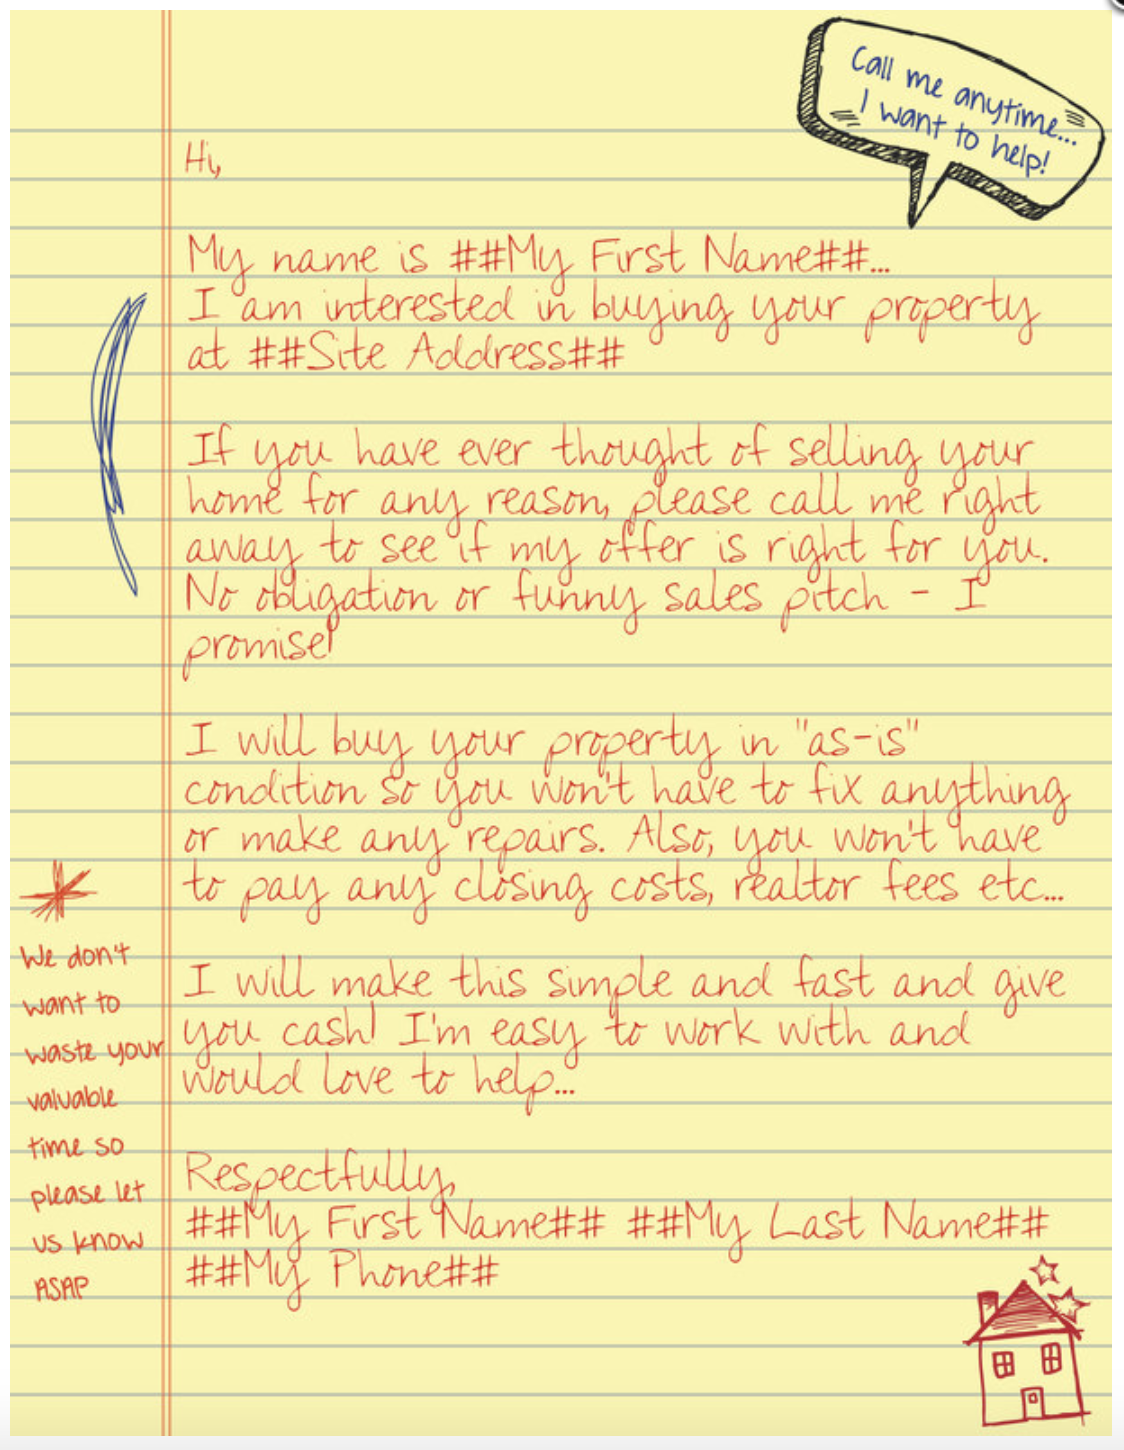 Call me anytime...
I want to help!
Hi,
My name is ##My First Name##...
I am interested in buying your property
at ##Site Address##
If you have ever thought of selling your
home for any reason, please call me right
away to see if my offer is right for you.
No obligation or funny sales pitch - I
promise!
I will buy your property in "as-is"
condition so you won't have to fix anything
or make any repairs. Also, you won't have
to pay any closing costs, realtor fees etc...
I will make this simple and fast and give
you cash! I'm easy to work with and
would love to help...
Respectfully,
##My First Name## ##My Last Name##
##My Phone##
We don't
want to
waste your
valuable
time so
please let
us know
ASAP